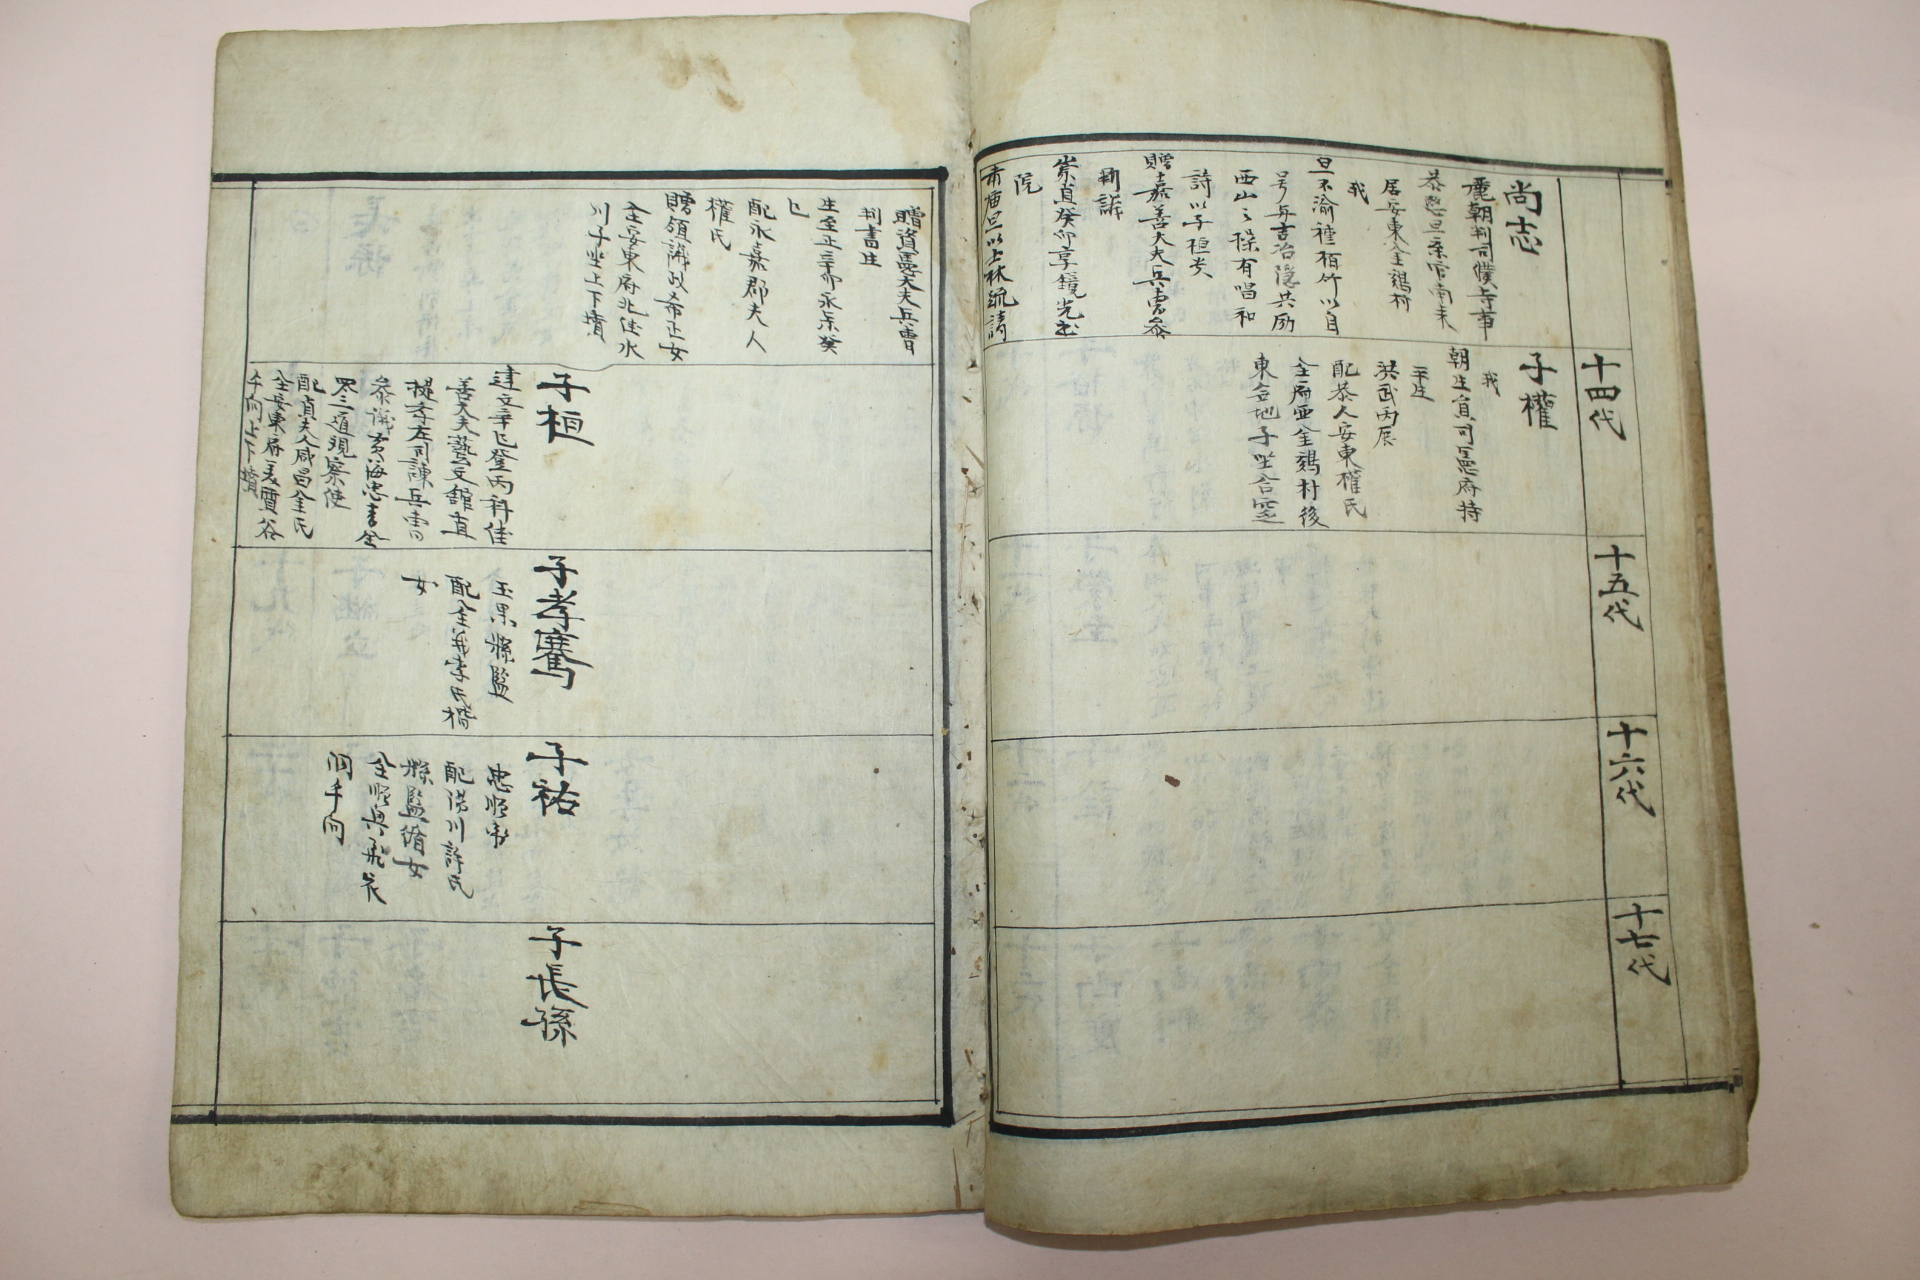 十四代
十五代
十六代
十七代
尚志
麗朝判司僕寺事
恭愍旦
居安東金鷄村
我
旦不渝種栢竹以自
号与吉冶隐共励
西山之操有唱和
詩以子桓贵
贈嘉善大夫兵曹叅
崇貞癸卯享鏡光書
院
子權
我
朝生員司憲府持
平生
洪武丙辰
配恭人安東權氏
全府西金鷄村後
東谷地子坐合窆
贈資憲大夫兵曹
判書生
生至正辛卯永樂癸
巳
配永嘉郡夫人
權氏
贈領議政希正女
全安東府北佳水
川子坐上下墳
子桓
建文辛巳登丙科佳
善大夫藝文館直
提孝左司諫兵曹
叅議黄海忠清全
罗三道观察使
配貞夫人咸昌金氏
全安東府美質谷
午向上下墳
子孝騫
玉果縣監
配全義李氏楷
女
子祐
忠順衛
配陽川許氏
縣監脩女
全順興飛岩
洞午向
子長孫